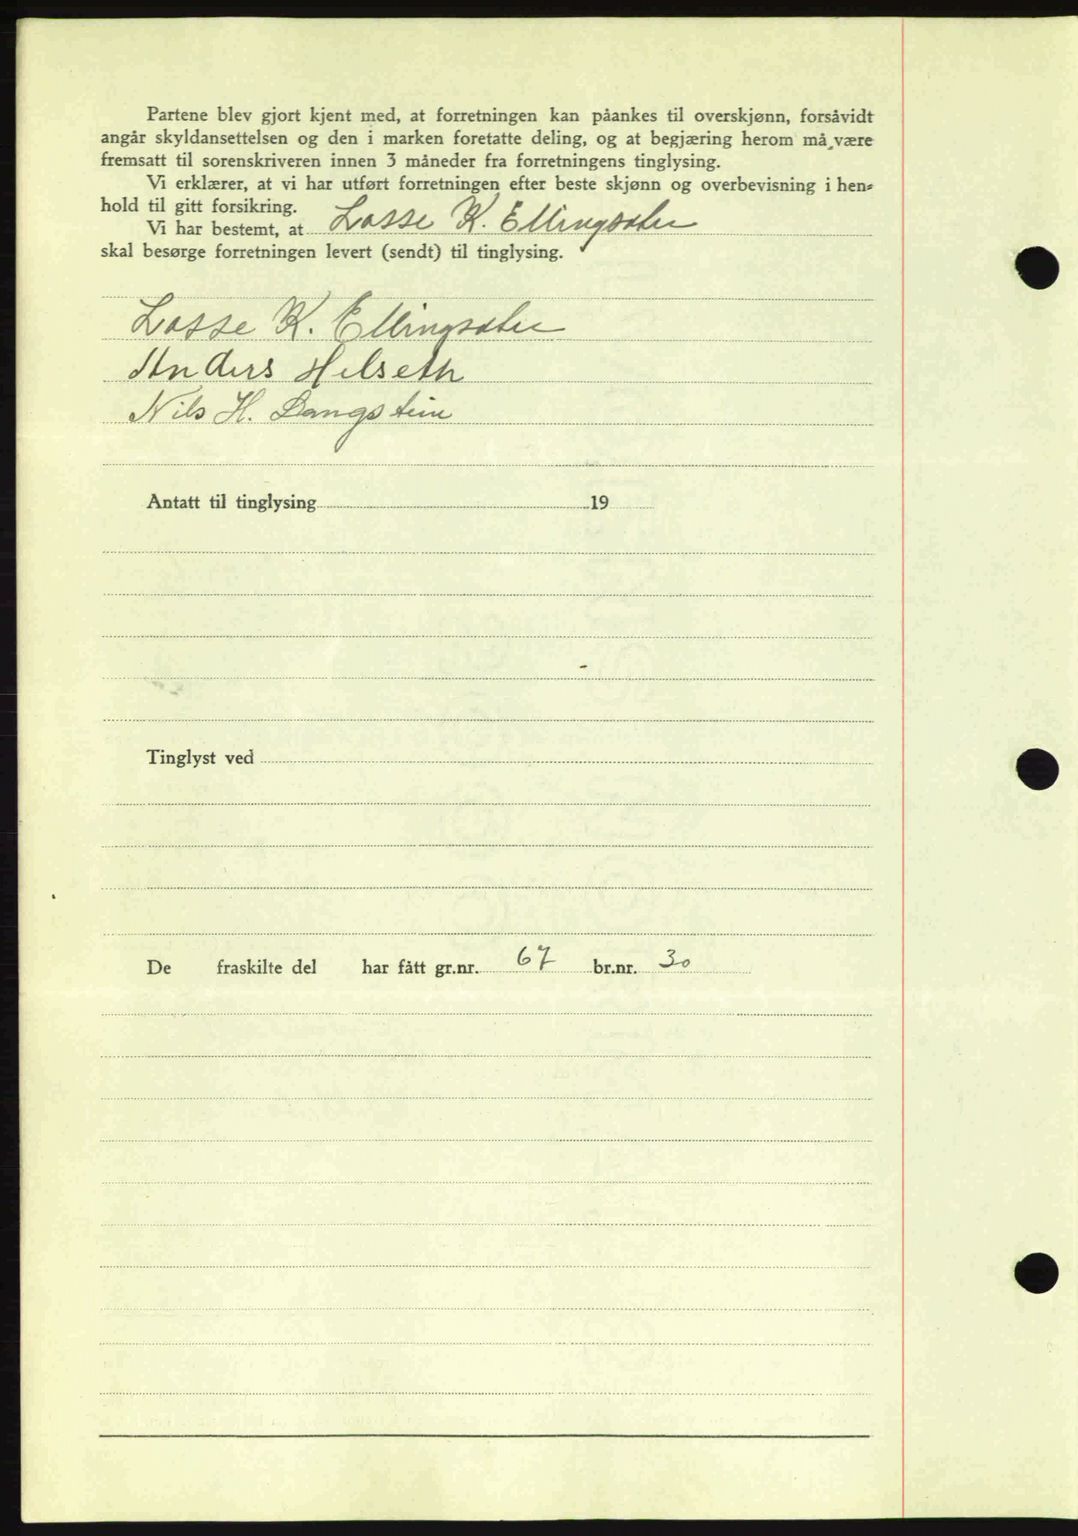 Partene blev gjort kjent med, at forretningen kan påankes til overskjønn, forsåvidt
angår skyldansettelsen og den i marken foretatte deling, og at begjæring herom må være
fremsatt til sorenskriveren innen 3 måneder fra forretningens tinglysing.
Vi erklærer, at vi har utført forretningen efter beste skjønn og overbevisning i hen-
hold til gitt forsikring.
Vi har bestemt, at Lasse K. Ellingsæter
skal besørge forretningen levert (sendt) til tinglysing.
Lasse K. Ellingsæter
Anders Helseth
Nils H. Langstein
Antatt til tinglysing 19
Tinglyst ved
De fraskilte del har fått gr.nr. 67 br.nr. 30